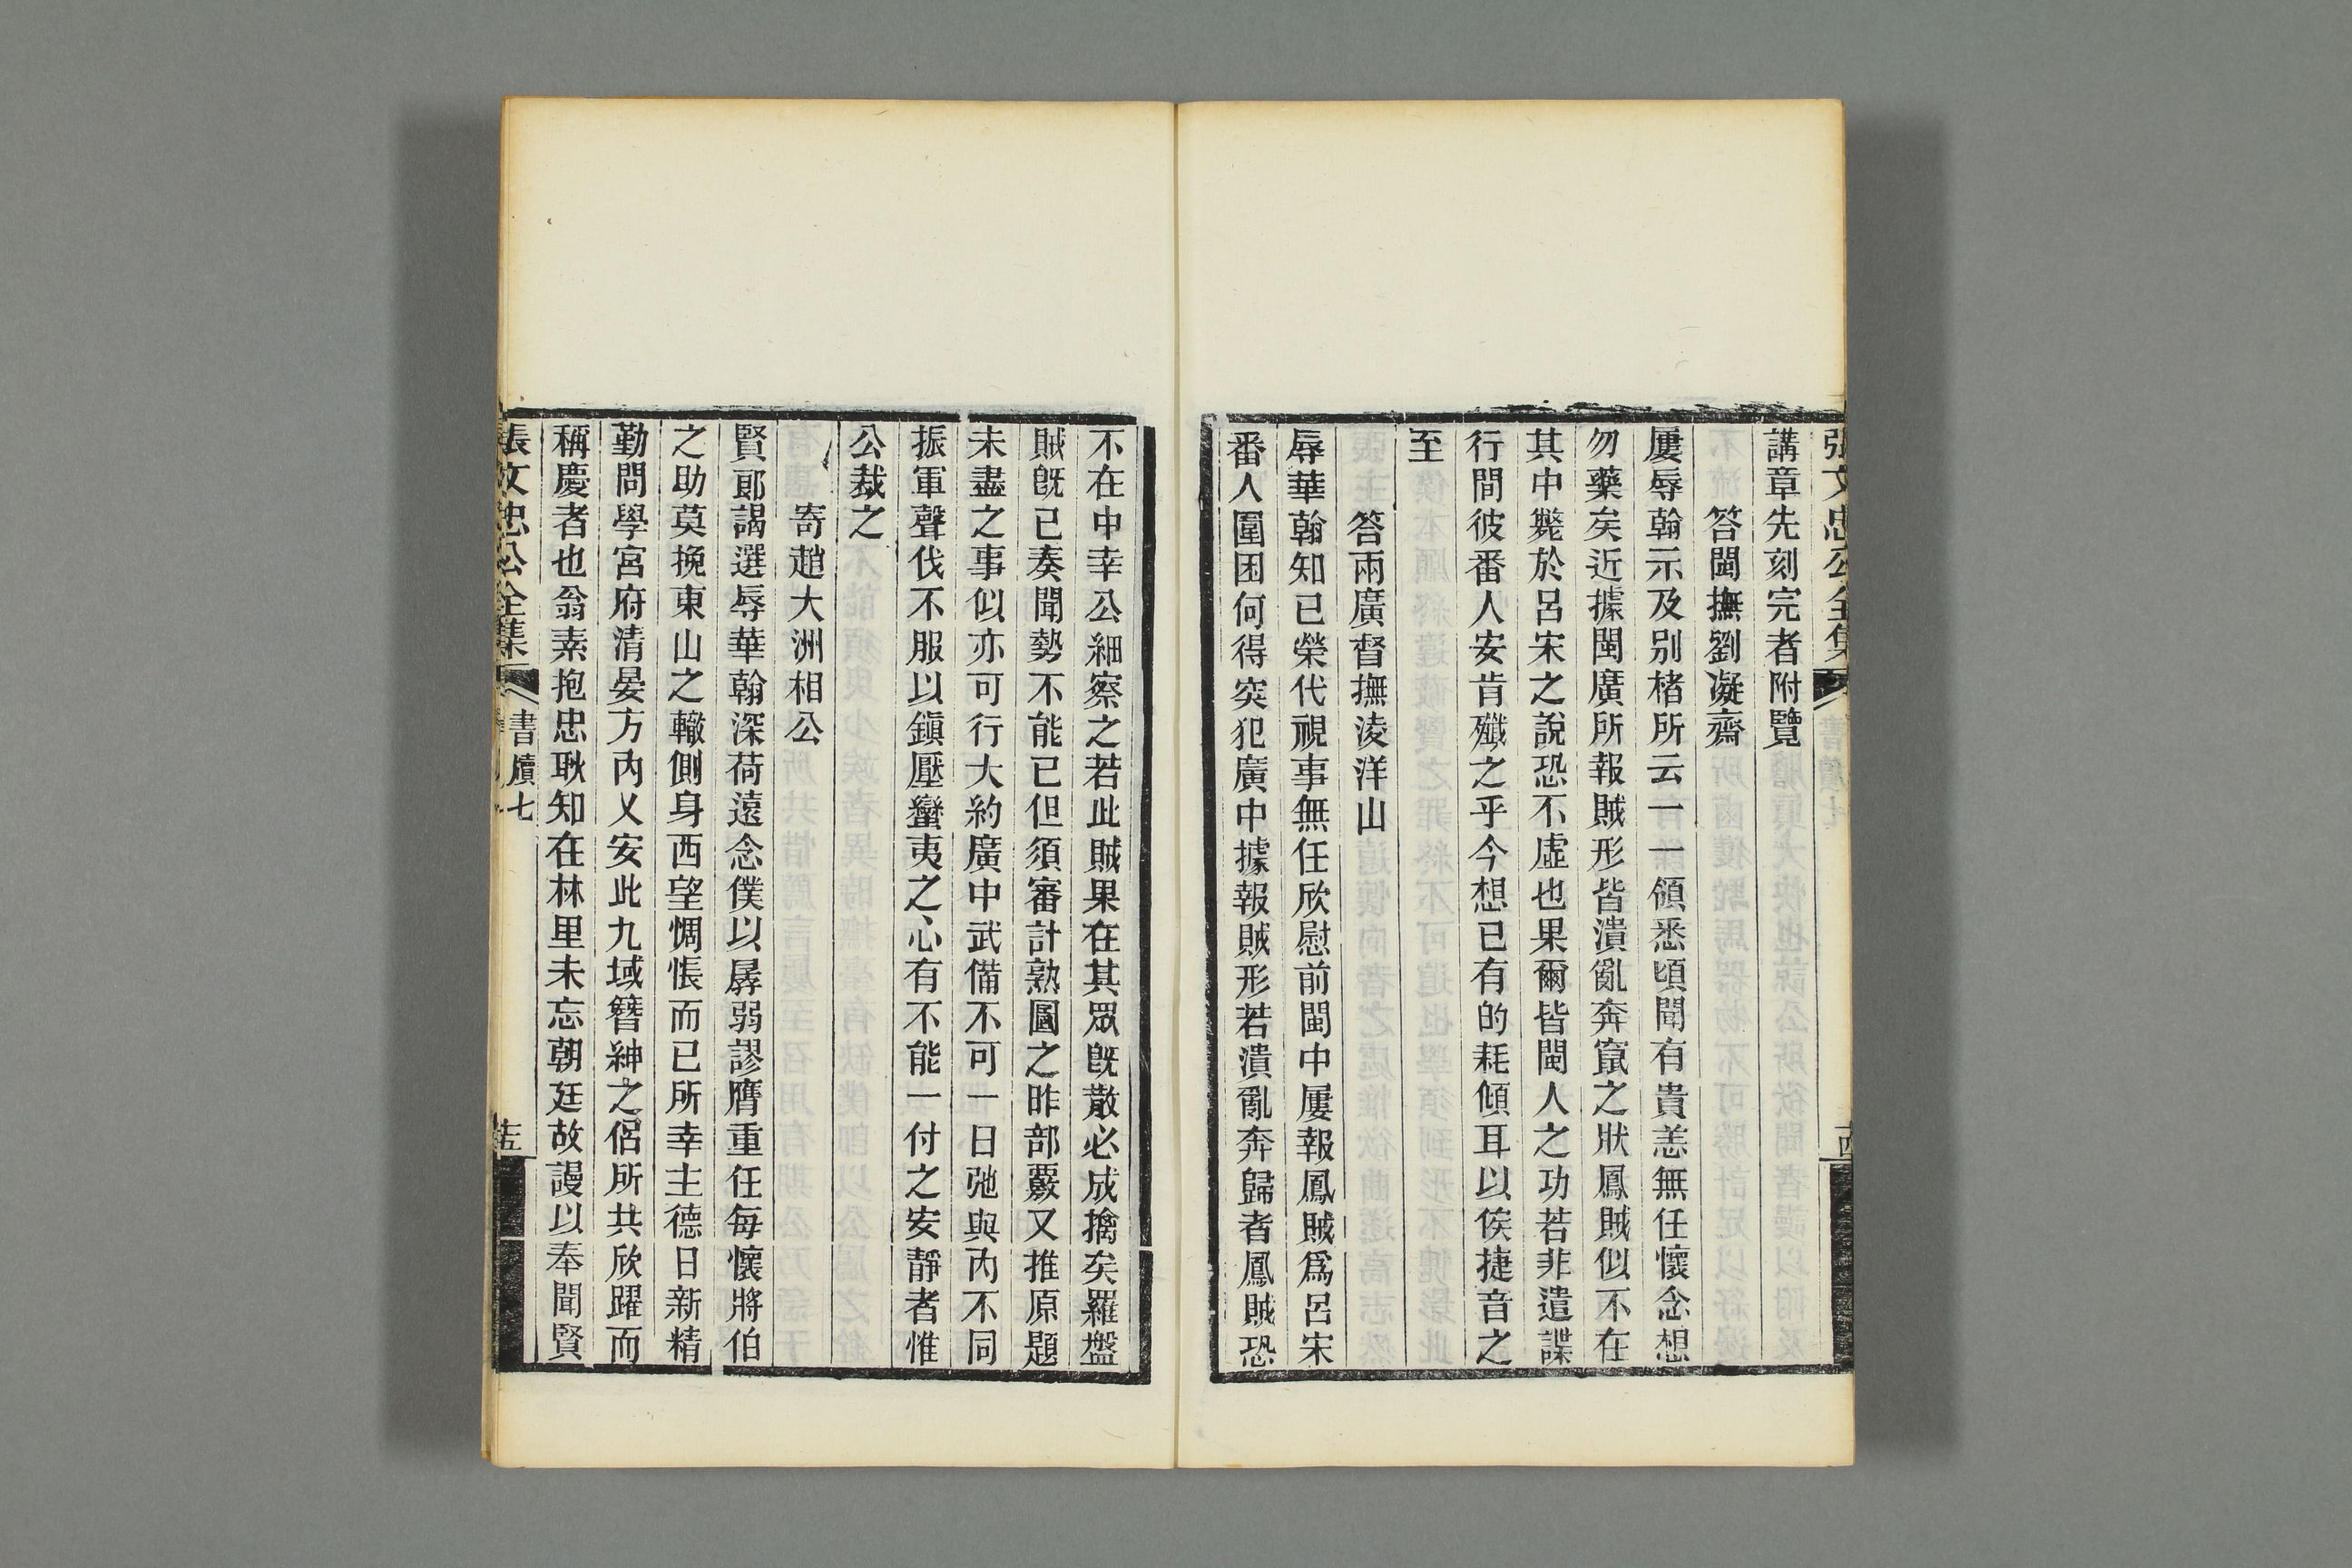 張文忠公全集
古
講章先刻完者附覽
答閩撫劉凝齋
屢辱翰示及别楮所云一一領悉頃聞有貴恙無任懷念想
勿藥矣近據閩廣所報賊形皆潰亂奔竄之狀鳳賊似不在
其中斃於呂宋之說恐不虛也果爾皆閩人之功若非遣諜
行間彼番人安肯殲之乎今想已有的耗傾耳以俟捷音之
至
答兩廣督撫淩洋山
辱華翰知已榮代視事無任欣慰前閩中屢報鳳賊爲呂宋
番人圍困何得突犯廣中據報賊形若潰亂奔歸者鳳賊恐
不在中幸公細察之若此賊果在其眾旣散必成擒矣羅盤
賊旣已奏聞勢不能已但須審計熟圖之昨部覈又推原題
未盡之事似亦可行大約廣中武備不可一日弛與內不同
振軍聲伐不服以鎮壓蠻夷之心有不能一付之安靜者惟
公裁之
寄趙大洲相公
賢郎謁選辱華翰深荷遠念僕以孱弱謬膺重任每懷將伯
之助莫挽東山之轍側身西望惆悵而已所幸主德日新精
勤問學宮府清晏方內乂安此九域簪紳之侶所共欣躍而
稱慶者也翁素抱忠耿知在林里未忘朝廷故謾以奉聞賢
張文忠公全集
書牘七